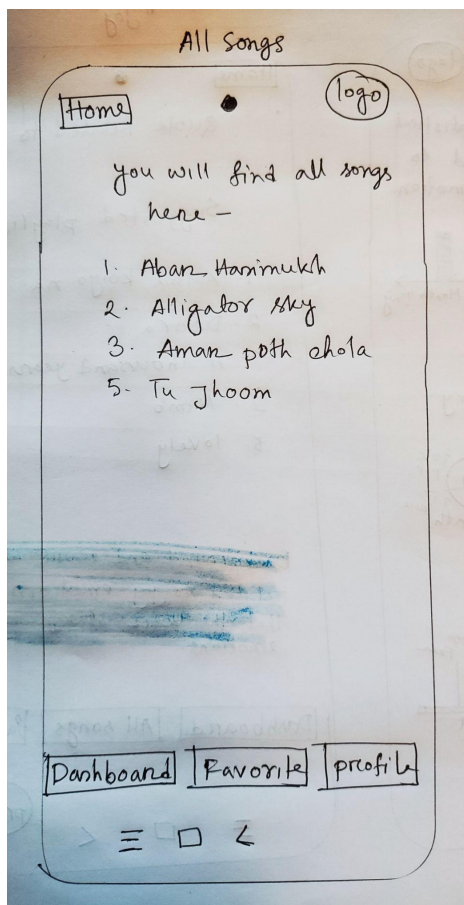 All Songs
Home
logo
You will find all songs
here -
1. Abar Hasimukh
2. Alligator sky
3. Amar poth chola
5. Tu Jhoom
Dashboard
Favorite
profile